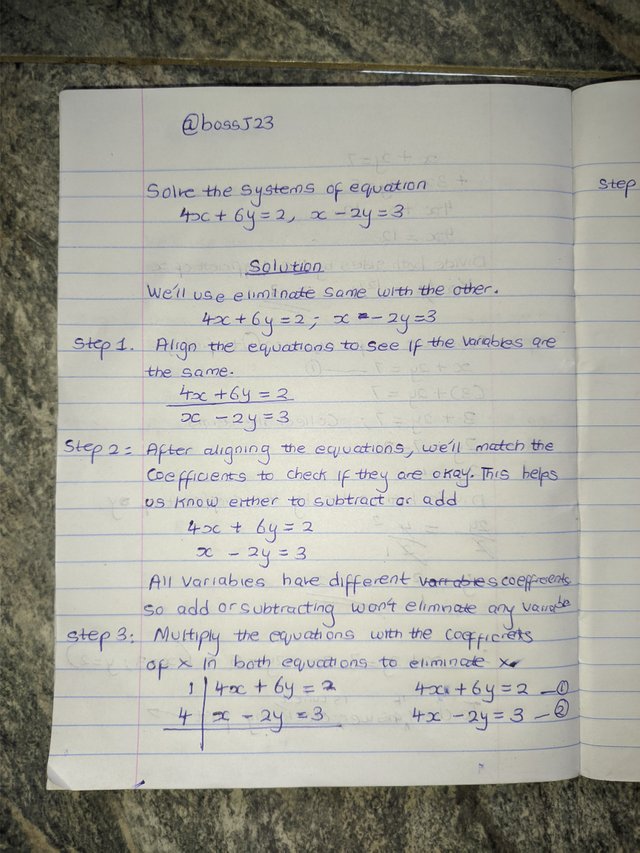 @bossJ23
Solve the systems of equation
4x + 6y = 2, x - 2y = 3
Solution
We'll use eliminate same with the other.
4x + 6y = 2; x - 2y = 3
Step 1. Align the equations to see if the variables are
the same.
4x + 6y = 2
x - 2y = 3
Step 2: After aligning the equations, we'll match the
coefficients to check if they are okay. This helps
us know either to subtract or add
4x + 6y = 2
x - 2y = 3
All variables have different variables coefficients
so add or subtracting won't eliminate any variable
Step 3: Multiply the equations with the coefficients
of x in both equations to eliminate x
1 | 4x + 6y = 2 4x + 6y = 2 - ①
4 | x - 2y = 3 4x - 2y = 3 - ②
Step